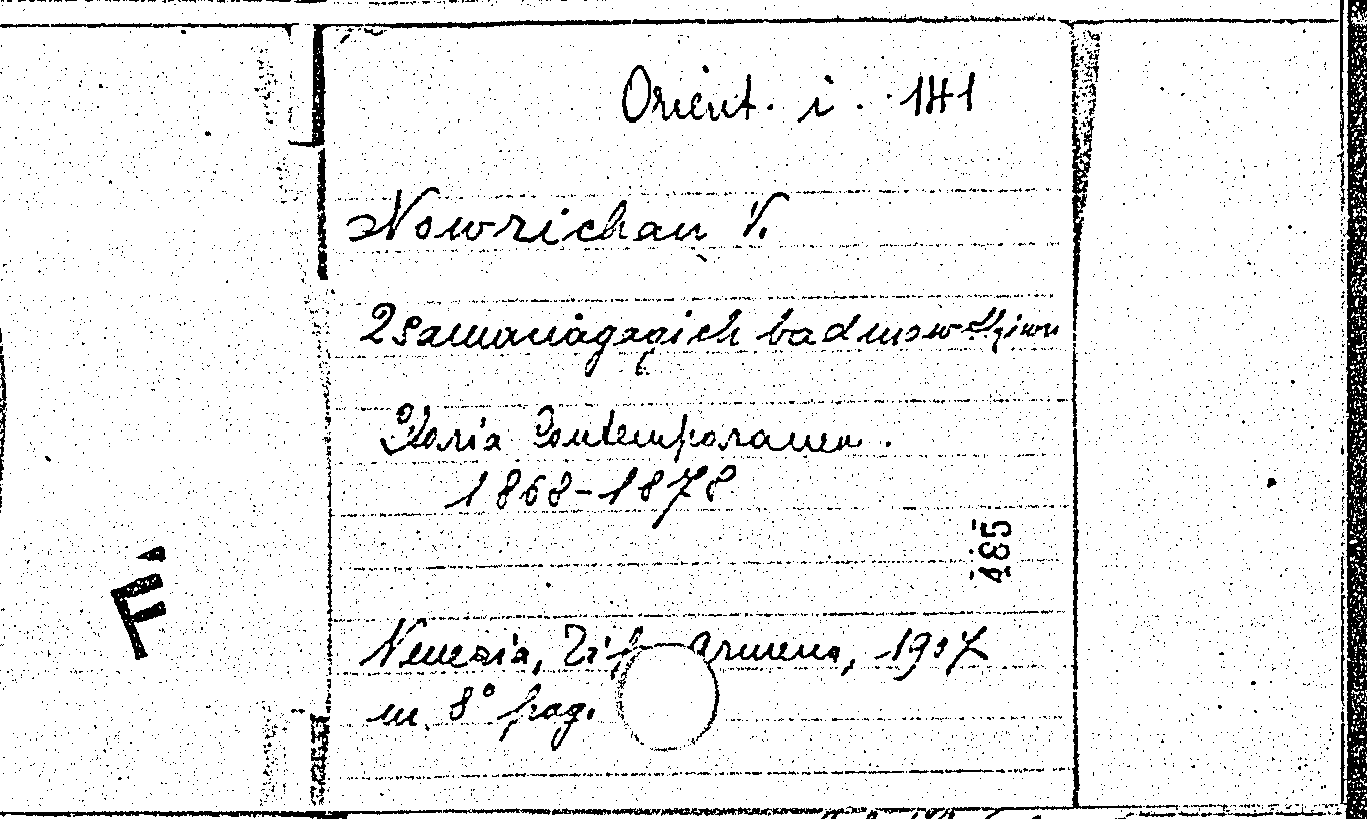 Orient. i. 141
Nowrichan V.
badmowthiwn
Storia Contemporanea.
1868-1878
485
Venezia, Tip. Armena, 1907
in 8° pag.
É